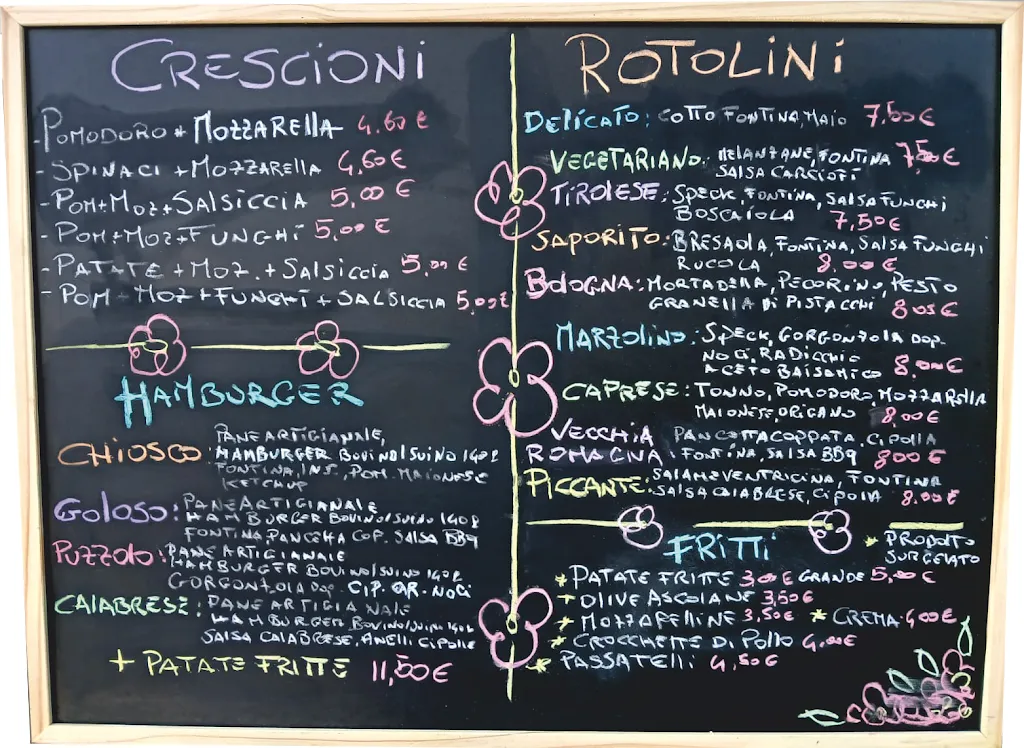 CRESCIONI
- POMODORO + MOZZARELLA 4,60 €
- SPINACI + MOZZARELLA 4,60 €
- POM+MOZ+SALSICCIA 5,00 €
- POM+MOZ+FUNGHI 5,00 €
- PATATE + MOZ. + SALSICCIA 5,00 €
- POM + MOZ + FUNGHI + SALSICCIA 5,00 €
HAMBURGER
CHIOSCO: PANE ARTIGIANALE,
HAMBURGER BOVINO/SUINO 140g
FONTINA, INS, POM. MAIONESE
KETCHUP
GOLOSO: PANE ARTIGIANALE
HAMBURGER BOVINO/SUINO 140g
FONTINA, PANCETTA COP. SALSA BBQ
PUZZOLO: PANE ARTIGIANALE
HAMBURGER BOVINO/SUINO 140g
GORGONZOLA DOP. CIP. NOCI
CALABRESE: PANE ARTIGIANALE
HAMBURGER BOVINO/SUINO 140g
SALSA CALABRESE, ANELLI CIPOLLE
+ PATATE FRITTE 11,50€
ROTOLINI
DELICATO: COTTO FONTINA, MAIO 7,50€
VEGETARIANO: MELANZANE, FONTINA 7,50€
SALSA CARCIOFI
TIROLESE: SPECK, FONTINA, SALSA FUNGHI
BOSCAIOLA 7,50€
SAPORITO: BRESAOLA, FONTINA, SALSA FUNGHI
RUCOLA 8,00€
BOLOGNA: MORTADELLA, PECORINO, PESTO
GRANELLA DI PISTACCHI 8,00€
MARZOLINO: SPECK, GORGONZOLA DOP.
NOCI, RADICCHIO
ACETO BALSAMICO 8,00€
CAPRESE: TONNO, POMODORO, MOZZARELLA
MAIONESE, ORIGANO 8,00€
VECCHIA PANCETTA COPPATA, CIPOLLA
ROMAGNA FONTINA, SALSA BBQ 8,00€
PICCANTE: SALAME VENTRICINA, FONTINA
SALSA CALABRESE, CIPOLLA 8,00€
FRITTI
* PRODOTTO
SURGELATO
* PATATE FRITTE 3,00€ GRANDE 5,00€
* OLIVE ASCOLANE 3,50€
* MOZZARELLINE 3,50€ * CREMA 4,00€
* CROCCHETTE DI POLLO 4,00€
* PASSATELLI 4,50€